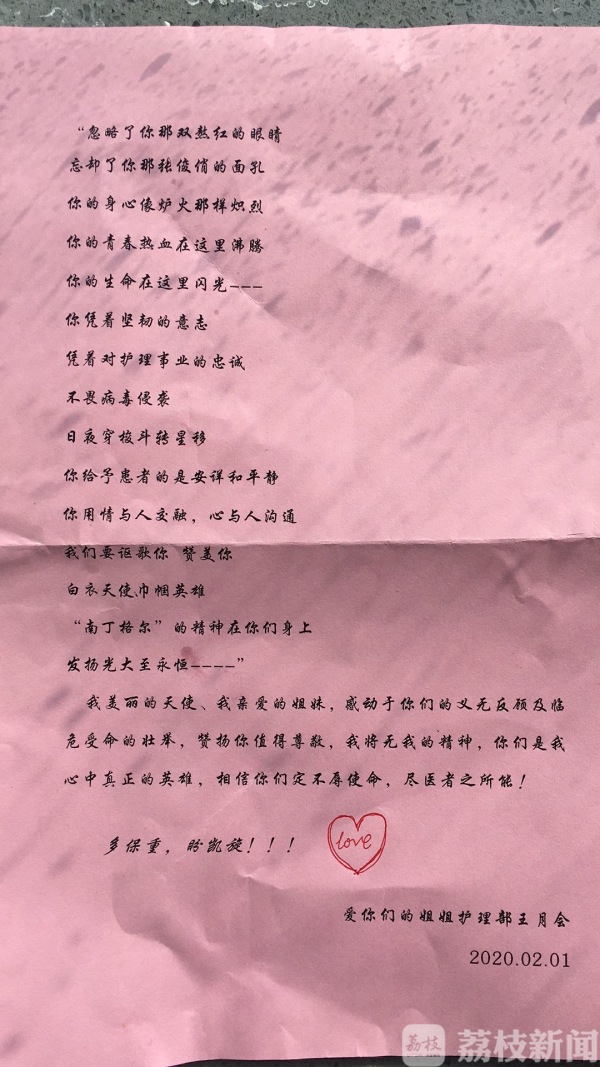 “忽略了你那双熬红的眼睛
忘却了你那张俊俏的面孔
你的身心像炉火那样炽烈
你的青春热血在这里沸腾
你的生命在这里闪光---
你凭着坚韧的意志
凭着对护理事业的忠诚
不畏病毒侵袭
日夜穿梭斗转星移
你给予患者的是安详和平静
你用情与人交融，心与人沟通
我们要讴歌你 赞美你
白衣天使巾帼英雄
“南丁格尔”的精神在你们身上
发扬光大至永恒----”
我美丽的天使、我亲爱的姐妹，感动于你们的义无反顾及临
危受命的壮举，赞扬你值得尊敬，我将无我的精神，你们是我
心中真正的英雄，相信你们定不辱使命，尽医者之所能！
多保重，盼凯旋！！！
love
爱你们的姐姐护理部王月会
2020.02.01
荔枝 荔枝新闻